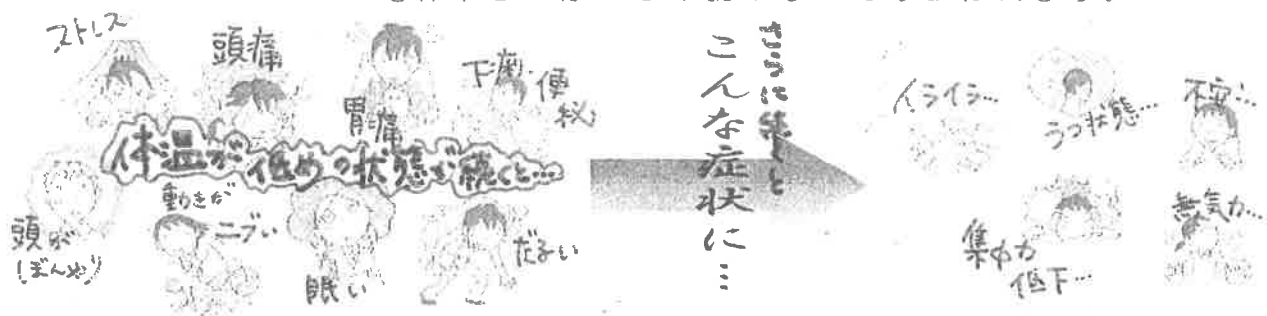 ストレス
頭痛
胃痛
下痢・便秘
体温が低めの状態が続くと…
頭が
ぼんやり
動きが
ニブい
眠い
だるい
さらに続くと
こんな症状に…
イライラ…
うつ状態…
不安…
集中力
低下…
無気力…